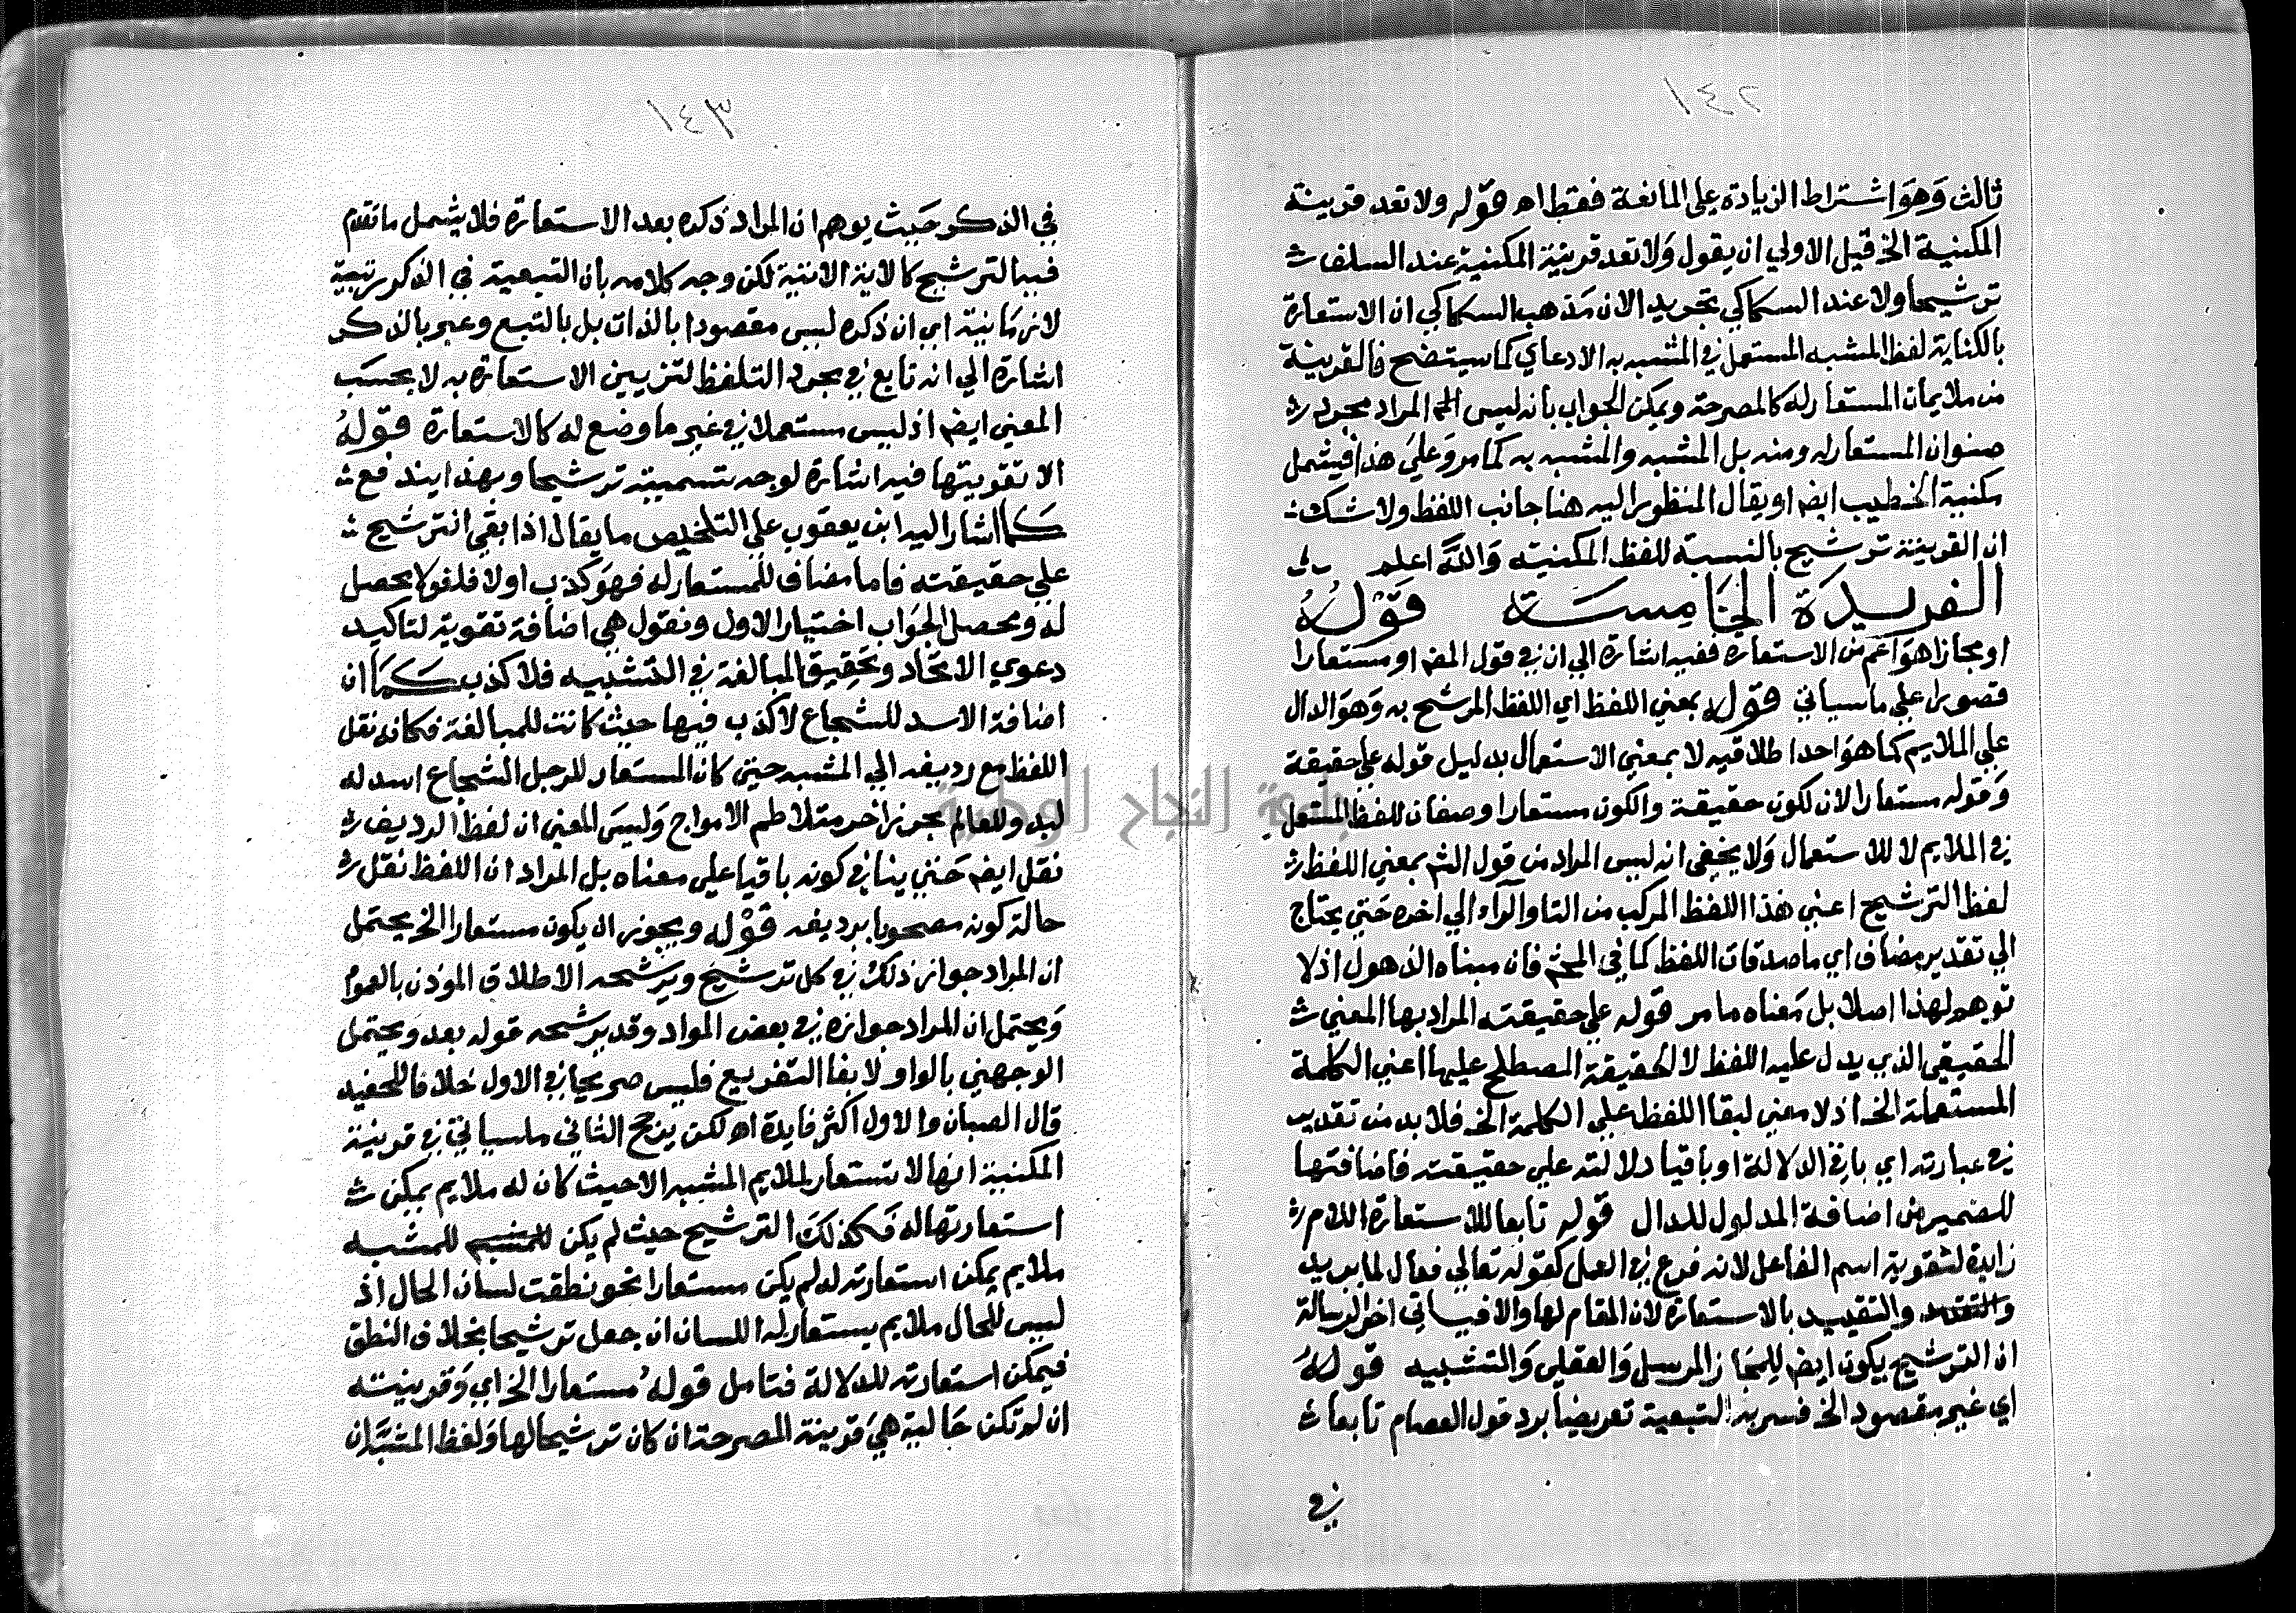 ١٤٢
ثالث وَهوَ اشتراط الزيادة على المانعة فقط اه قوله ولا تعد قرينة
المكنية الخ قيل الاولي ان يقول وَلا تعد قرينة المكنية عند السلف
ترشيحا ولا عند السكاكي تجريد الان مَذهب السكاكي ان الاستعارة
بالكناية لفظ المشبه المستعمل في المشبه به الادعاي كما سيتضح فالقرينة
من ملايمات المستعار له كالمصرحة ويمكن الجواب بانه ليس المراد مجرد
صنوان المستعار له ومنه بل المشبه والمشبه به كما مر وَعلي هذا فيشمل
مكنية الخطيب ايضا او يقال المنظور اليه هنا جانب اللفظ ولا شك
ان القرينة ترشيح بالنسبة للفظ المكنية وَاللّه اعلم
الفريدَة الخَامِسَة قَوْلُهُ
او مجازا هوَ اعم من الاستعارة ففيه اشارة الي ان في قول المص او مستعارا
قصورا علي ما سياتي قوله بمعني اللفظ اي اللفظ المرشح به وَهوَ الدال
علي الملايم كما هوَ احد اطلاقيه لا بمعني الاستعمال بدليل قوله علي حقيقة
وَقوله مستعارا لان لكون حقيقة والكون مستعارا وصفان للفظ المستعمل
في الملايم لا للاستعمال وَلا يخفى انه ليس المراد من قول الش بمعني اللفظ
لفظ الترشيح اعني هذا اللفظ المركب من التا والراء الي اخره حَتي يحتاج
الي تقدير مضاف اي ماصدقات اللفظ كما في فان مبناه الذهول اذ لا
توهم لهذا اصلا بل مَعناه ما مر قوله علي حقيقته المراد بها المعني
الحقيقي الذي يدل عليه اللفظ لا الحقيقة المصطلح عليها اعني الكلمة
المستعملة الخ اذ لا معني لبقا اللفظ علي الكلمة الخ فلا بد من تقدير
في عبارته اي باقي الدلالة او باقيا دلالته علي حقيقته فاضافتها
للضمير من اضافة المدلول للدال قوله تابعا للاستعارة اللام
زايدة لتقوية اسم الفاعل لانه فرع في العمل كقوله تعالي فعال لما يريد
والتقييد بالاستعارة لان المقام لها والا فسياتي اخر الرسالة
ان الترشيح يكون ايضا للمجاز المرسل وَالعقلي وَالتشبيه قولهُ
اي غير مقصود الخ فسر به التبعية تعريضا برد قول العصام تابعا
في
١٤٣
في الذكر حَيث يوهم ان المراد ذكره بعد الاستعارة فلا يشمل ما تقدم
فيها الترشيح كالاية الاتية لكن وجه كلامه بان التبعية في الذكر رتبية
لا زمَانية اي ان ذكره ليس مقصودا بالذات بل بالتبع وعبر بالذكر
اشارة الي انه تابع في مجرد التلفظ لتزيين الاستعارة به لا بحسَب
المعني ايضا اذ ليس مستعملا في غير ما وضع له كالاستعارة قوْلهُ
الا تقويتها فيه اشارة لوجه تسميته ترشيحا وبهذا يندفع
كَما اشار اليه ابن يعقوب علي التلخيص ما يقال اذا بقي الترشيح
علي حقيقته فاما مضاف للمستعار له فهوَ كذب اولا فلغو لا يحصل
له ومحصل الجَواب اختيار الاول ونقول هي اضافة تقوية لتاكيد
دعوي الاتحاد وتحقيق المبالغة في التشبيه فلا كذب كَمَا ان
اضافة الاسد للشجاع لا كذب فيها حيث كانت للمبالغة فكانه نقل
اللفظ مع رديفه الي المشبه حتي كان المستعار للرجل الشجاع اسد له
لبد وللعالم بحر زاخر متلاطم الامواج وَليسَ المعني ان لفظ الرديف
نقل ايضا حَتي ينافي كونه باقيا علي معناه بل المراد ان اللفظ نقل
حالة كونه مصحوبا برديفه قوْله ويجوز ان يكون مستعارا الخ يحتمل
ان المراد جواز ذلك في كل ترشيح ويرشحه الاطلاق المؤذن بالعموم
وَيحتمل ان المراد جوازه في بعض المواد وقد يرشحه قوله بعد ويحتمل
الوجهين بالواو لا بفا التفريع فليس صريحا في الاول خلافا للحفيد
قال الصبان والاول اكثر فايدة اه لكن يرجح الثاني ما سياتي في قرينة
المكنية انها لا تستعار لملايم المشبه الا حيث كان له ملايم يمكن
استعارتها له فَكذلكَ الترشيح حيث لم يكن للمشبه للمشبه
ملايم يمكن استعارته له لم يكن مستعارا نحو نطقت لسان الحال اذ
ليس للحال ملايم يستعار له اللسان ان جعل ترشيحا بخلاف النطق
فيمكن استعارته للدلالة فتامل قولهُ مستعارا الخ اي وَقرينته
ان لم تكن حَالية هيَ قرينة المصرحة ان كان ترشيحا لها وَلفظ المشبَّه ان
جامعة النجاح الوطنية